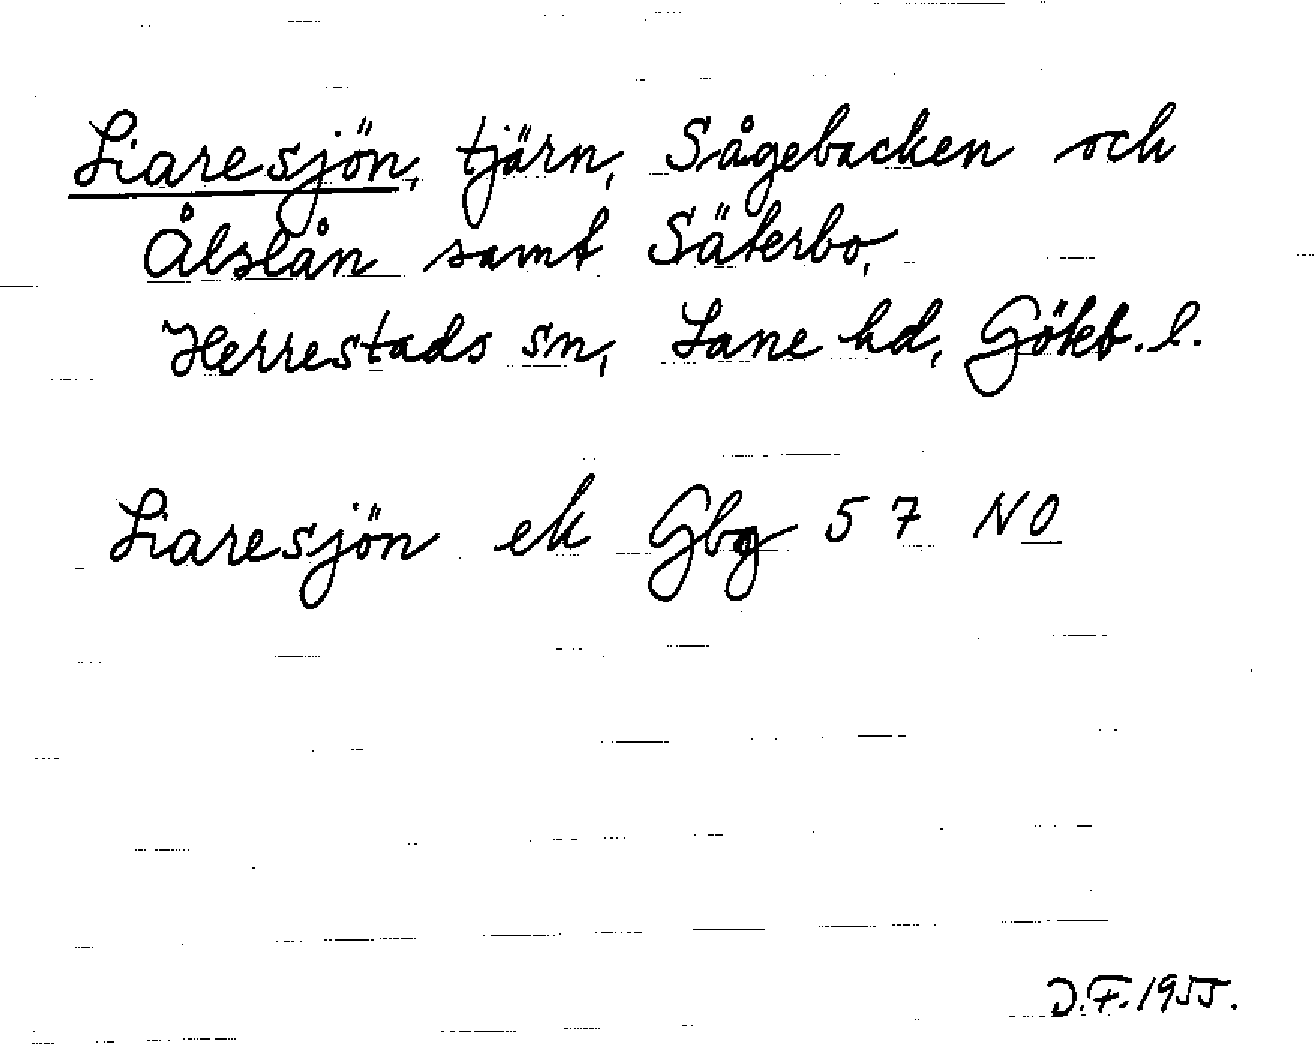 Liaresjön, tjärn, Sågebacken och
Ålslån samt Säterbo,
Herrestads sn, Lane hd, Gökb. l.
Liaresjön ek Gbg 57 NO
D.F. 1955.